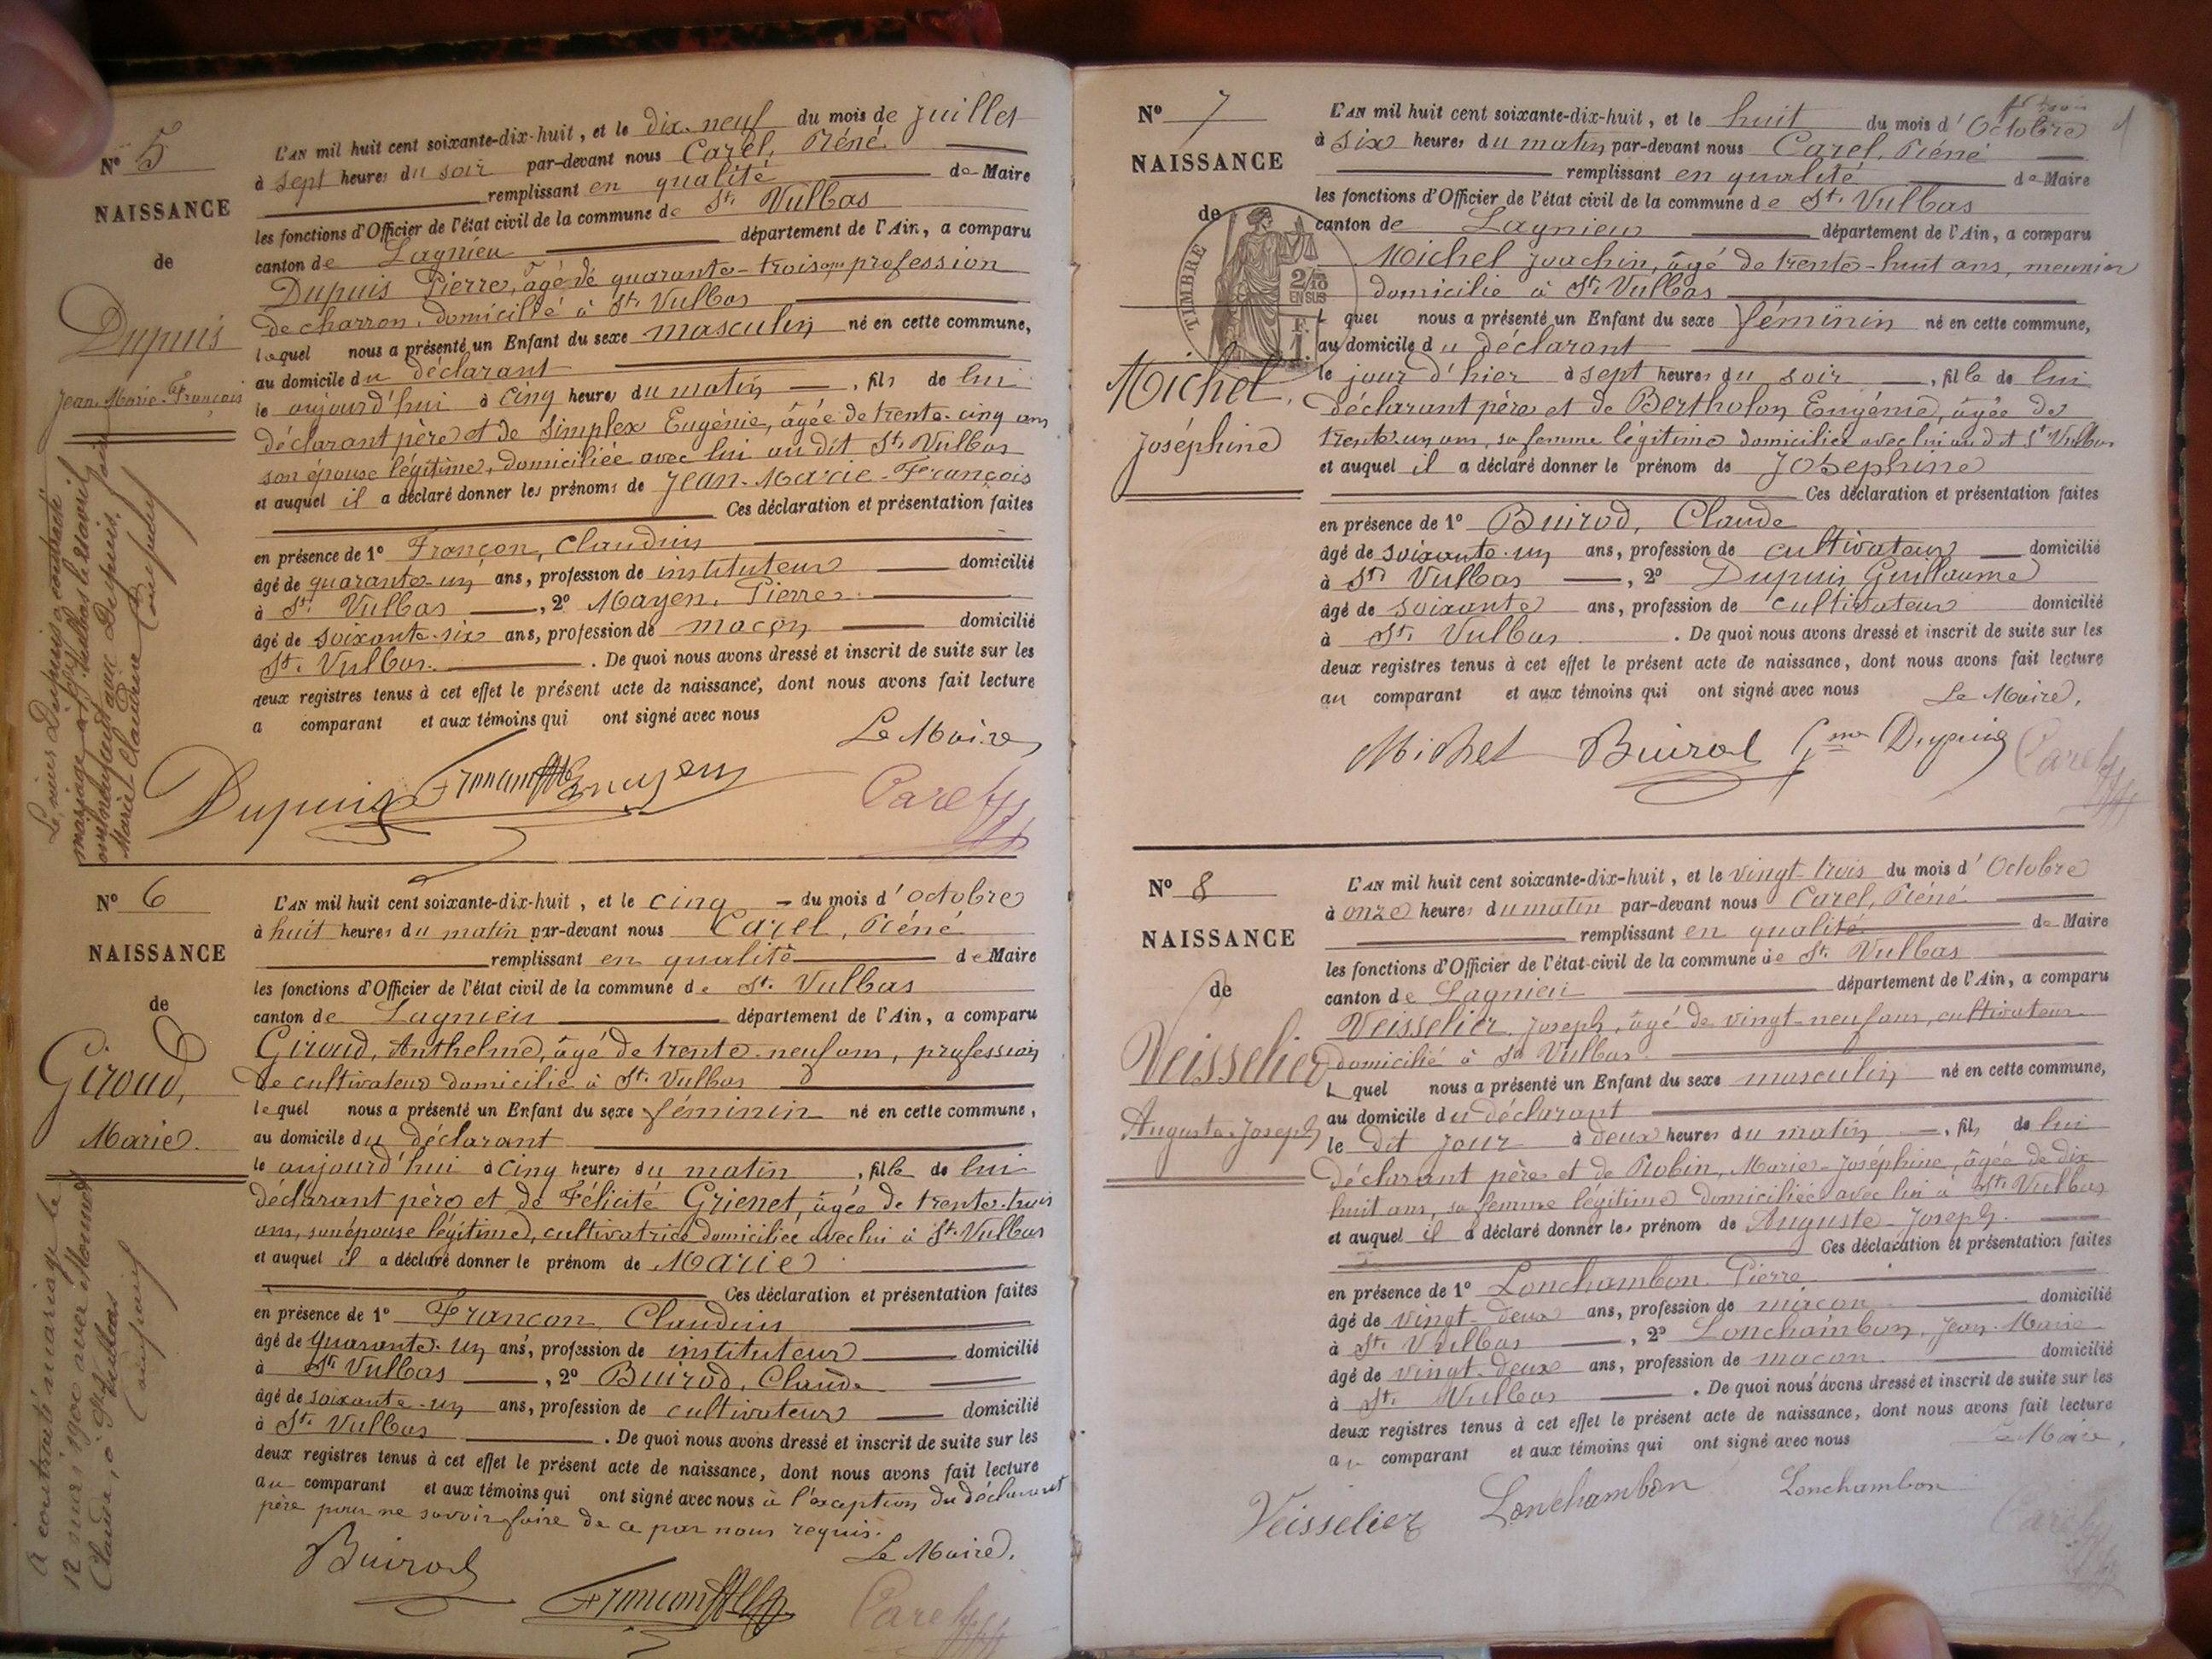 Nº 5
NAISSANCE
de
Dupuis
Jean-Marie-François
L'AN mil huit cent soixante-dix-huit, et le dix-neuf du mois de juillet
à sept heures du soir par-devant nous Carel, Réné
remplissant en qualité de Maire
les fonctions d'Officier de l'état civil de la commune de St. Vulbas
canton de Lagnieu département de l'Ain, a comparu
Dupuis Pierre, âgé de quarante-trois ans profession
de charron, domicilié à St. Vulbas
lequel nous a présenté un Enfant du sexe masculin né en cette commune,
au domicile du déclarant
le aujourd'hui à cinq heures du matin, fils de lui
déclarant père et de Simplex Eugénie, âgée de trente-cinq ans
son épouse légitime, domiciliée avec lui au dit St. Vulbas
et auquel il a déclaré donner les prénoms de Jean-Marie-François
Ces déclaration et présentation faites
en présence de 1º Françon, Claudius
âgé de quarante-un ans, profession de instituteur domicilié
à St. Vulbas, 2º Mayen, Pierre
âgé de soixante-six ans, profession de maçon domicilié
St. Vulbas. De quoi nous avons dressé et inscrit de suite sur les
deux registres tenus à cet effet le présent acte de naissance, dont nous avons fait lecture
a comparant et aux témoins qui ont signé avec nous
Le Maire,
Dupuis Mayen Carel
Le sieur Dupuis a contracté
mariage à St Vulbas le
avec Dupuis,
Marie Claudine
Nº 6
NAISSANCE
de
Giroud,
Marie.
L'AN mil huit cent soixante-dix-huit, et le cinq du mois d'octobre
à huit heures du matin par-devant nous Carel, Réné
remplissant en qualité de Maire
les fonctions d'Officier de l'état civil de la commune de St. Vulbas
canton de Lagnieu département de l'Ain, a comparu
Giroud, Anthelme, âgé de trente-neuf ans, profession
de cultivateur domicilié à St. Vulbas
lequel nous a présenté un Enfant du sexe féminin né en cette commune,
au domicile du déclarant
le aujourd'hui à cinq heures du matin, fille de lui
déclarant père et de Félicité Grienet, âgée de trente-trois
ans, son épouse légitime, cultivatrice domiciliée avec lui à St. Vulbas
et auquel il a déclaré donner le prénom de Marie
Ces déclaration et présentation faites
en présence de 1º Françon, Claudius
âgé de quarante-un ans, profession de instituteur domicilié
à St. Vulbas, 2º Buirod, Claude
âgé de soixante-un ans, profession de cultivateur domicilié
à St. Vulbas. De quoi nous avons dressé et inscrit de suite sur les
deux registres tenus à cet effet le présent acte de naissance, dont nous avons fait lecture
au comparant et aux témoins qui ont signé avec nous à l'exception du déclarant
père pour ne savoir faire de ce par nous requis.
Le Maire,
Buirod
Françon Carel
A contracté mariage le
12 mars 1900 avec
Claude, à St Vulbas
Nº 7
NAISSANCE
de
TIMBRE
2/10
EN SUS
1 F.
Michel,
Joséphine
L'AN mil huit cent soixante-dix-huit, et le huit du mois d'Octobre
à six heures du matin par-devant nous Carel, Réné
remplissant en qualité de Maire
les fonctions d'Officier de l'état civil de la commune de St. Vulbas
canton de Lagnieu département de l'Ain, a comparu
Michel Joachin, âgé de trente-huit ans, meunier
domicilié à St. Vulbas
Lequel nous a présenté un Enfant du sexe féminin né en cette commune,
au domicile du déclarant
le jour d'hier à sept heures du soir, fille de lui
déclarant père et de Bertholon Eugénie, âgée de
trente-un ans, sa femme légitime domiciliée avec lui au dit St Vulbas
et auquel il a déclaré donner le prénom de Josephine
Ces déclaration et présentation faites
en présence de 1º Buirod, Claude
âgé de soixante-un ans, profession de cultivateur domicilié
à St. Vulbas, 2º Dupuis Guillaume
âgé de soixante ans, profession de cultivateur domicilié
à St. Vulbas. De quoi nous avons dressé et inscrit de suite sur les
deux registres tenus à cet effet le présent acte de naissance, dont nous avons fait lecture
au comparant et aux témoins qui ont signé avec nous Le Maire,
Michel Buirod Gme Dupuis Carel
Nº 8
NAISSANCE
de
Veisselier
Auguste-Joseph
L'AN mil huit cent soixante-dix-huit, et le vingt-trois du mois d'Octobre
à onze heures du matin par-devant nous Carel, Réné
remplissant en qualité de Maire
les fonctions d'Officier de l'état-civil de la commune de St. Vulbas
canton de Lagnieu département de l'Ain, a comparu
Veisselier Joseph, âgé de vingt-neuf ans, cultivateur
domicilié à St. Vulbas
Lequel nous a présenté un Enfant du sexe masculin né en cette commune,
au domicile du déclarant
le dit jour à deux heures du matin, fils de lui
déclarant père et de Robin, Marie-Joséphine, âgée de dix
huit ans, sa femme légitime domiciliée avec lui à St. Vulbas
et auquel il a déclaré donner les prénom de Auguste-Joseph.
Ces déclaration et présentation faites
en présence de 1º Lonchambon Pierre
âgé de vingt-deux ans, profession de maçon domicilié
à St. Vulbas, 2º Lonchambon, Jean-Marie
âgé de vingt-deux ans, profession de maçon domicilié
à St. Vulbas. De quoi nous avons dressé et inscrit de suite sur les
deux registres tenus à cet effet le présent acte de naissance, dont nous avons fait lecture
au comparant et aux témoins qui ont signé avec nous Le Maire,
Veisselier Lonchambon Lonchambon Carel